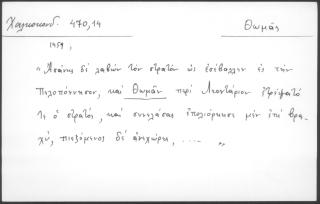 Χαλκοκονδ. 470,14 Θωμᾶς
1459,
"Ἀσάνης δὲ λαβὼν τὸν στρατὸν ὡς ἐσέβαλλεν ἐς τὴν
Πελοπόννησον, καὶ Θωμᾶν περὶ Λεοντάριον ἐτρέψατό
τε ὁ στρατός, καὶ συνελάσας ἐπολιόρκησε μὲν ἐπὶ βρα-
χύ, πιεζόμενος δὲ ἀνεχώρει, ..... "